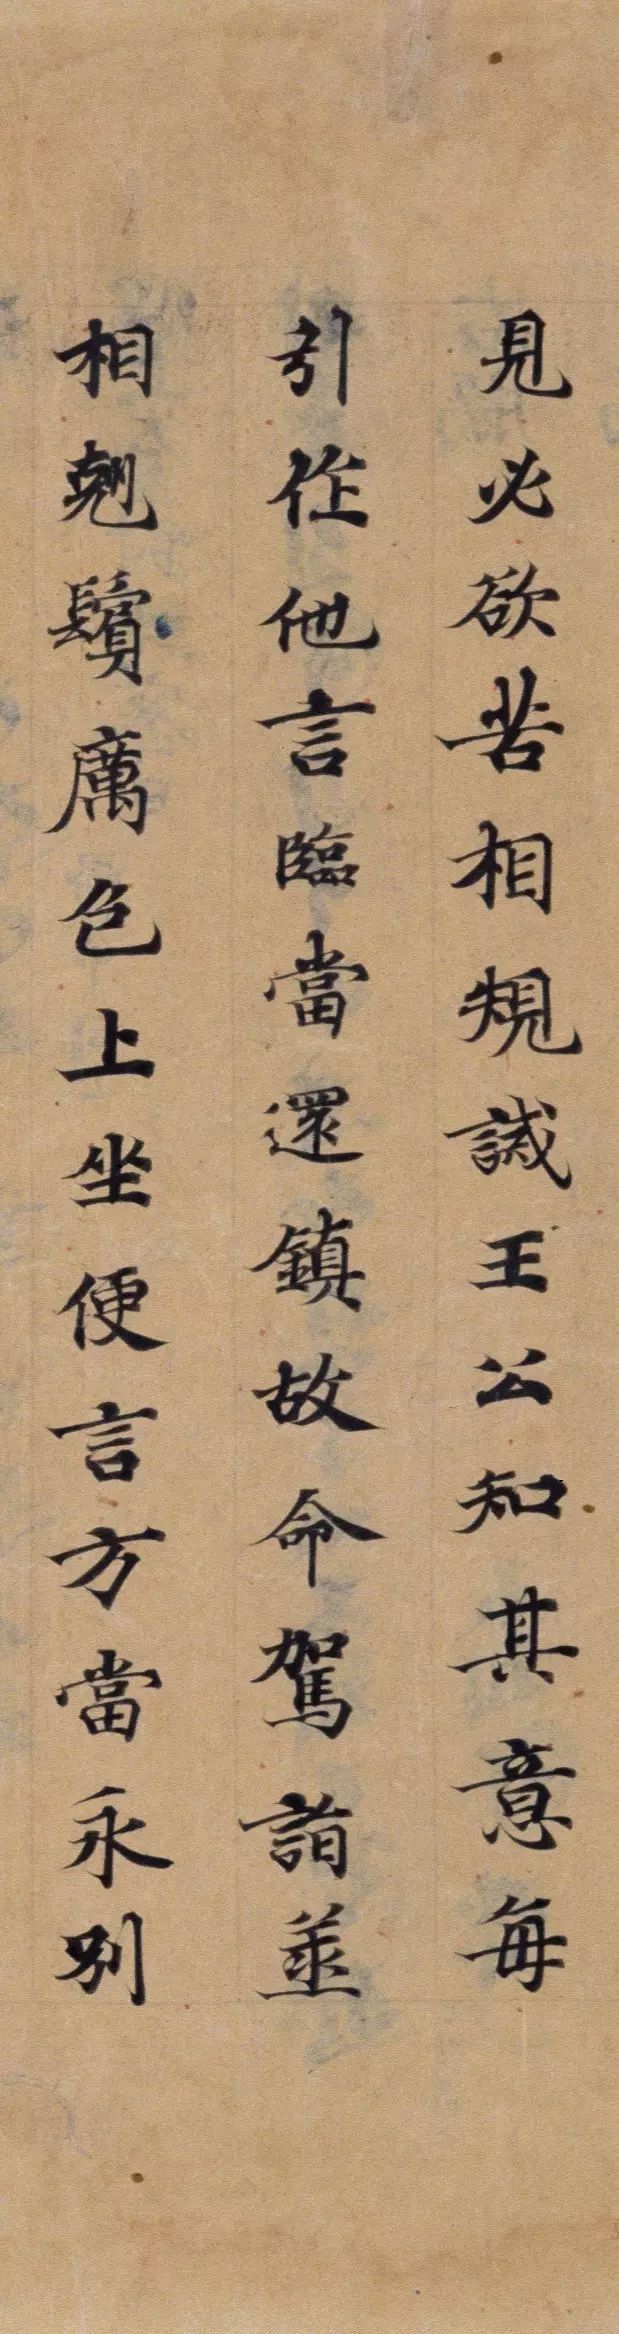 見必欲苦相規誡王公知其意每
引作他言臨當還鎮故命駕詣丞
相翹鬢厲色上坐便言方當永別